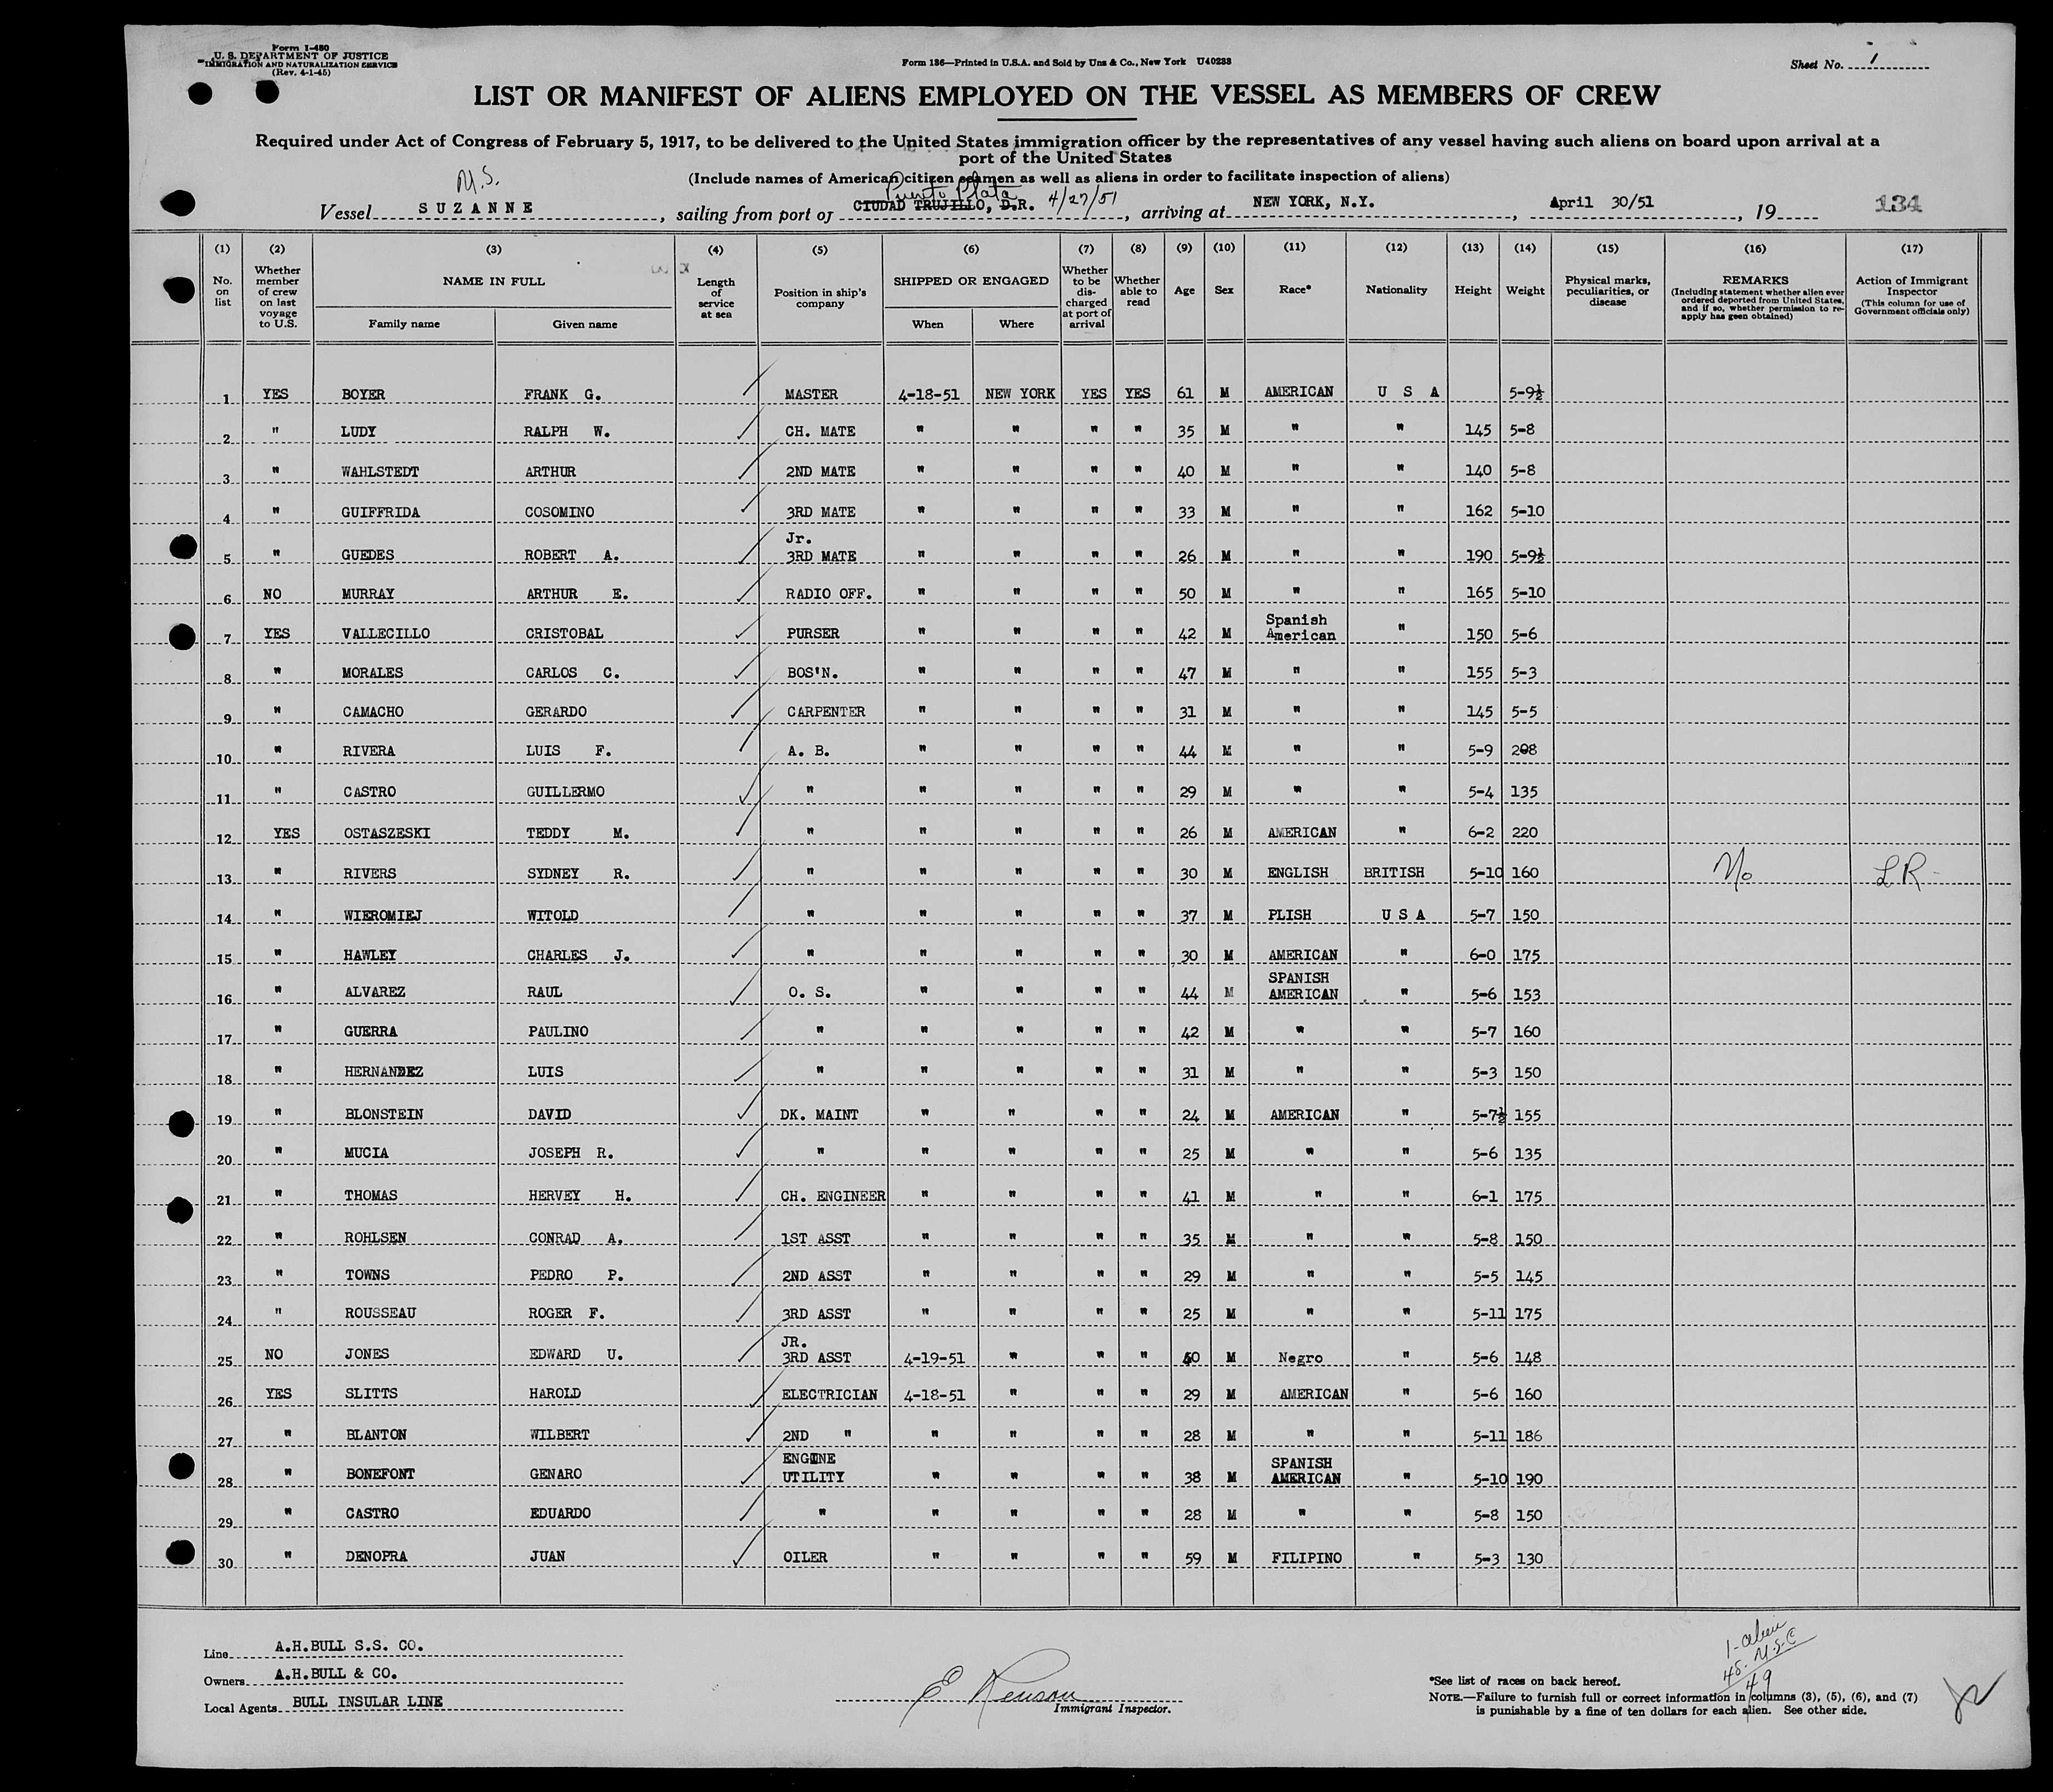 Form I-480
U. S. DEPARTMENT OF JUSTICE
IMMIGRATION AND NATURALIZATION SERVICE
(Rev. 4-1-45)
Form 136—Printed in U.S.A. and Sold by Unz & Co., New York U40233
Sheet No. 1
LIST OR MANIFEST OF ALIENS EMPLOYED ON THE VESSEL AS MEMBERS OF CREW
Required under Act of Congress of February 5, 1917, to be delivered to the United States immigration officer by the representatives of any vessel having such aliens on board upon arrival at a
port of the United States
(Include names of American citizen seamen as well as aliens in order to facilitate inspection of aliens)
M.S. Puerto Plata
Vessel SUZANNE, sailing from port of CIUDAD TRUJILLO, D.R. 4/27/51, arriving at NEW YORK, N.Y., April 30/51, 19 134
(1) (2) (3) (4) (5) (6) (7) (8) (9) (10) (11) (12) (13) (14) (15) (16) (17)
No. on list
Whether member of crew on last voyage to U.S.
NAME IN FULL
Family name Given name
Length of service at sea
Position in ship's company
SHIPPED OR ENGAGED
When Where
Whether to be discharged at port of arrival
Whether able to read
Age Sex Race* Nationality Height Weight
Physical marks, peculiarities, or disease
REMARKS
(Including statement whether alien ever ordered deported from United States, and if so, whether permission to re-apply has geen obtained)
Action of Immigrant Inspector
(This column for use of Government officials only)
1 YES BOYER FRANK G. MASTER 4-18-51 NEW YORK YES YES 61 M AMERICAN U S A 5-9½
2 " LUDY RALPH W. CH. MATE " " " " 35 M " " 145 5-8
3 " WAHLSTEDT ARTHUR 2ND MATE " " " " 40 M " " 140 5-8
4 " GUIFFRIDA COSOMINO 3RD MATE " " " " 33 M " " 162 5-10
5 " GUEDES ROBERT A. Jr. 3RD MATE " " " " 26 M " " 190 5-9½
6 NO MURRAY ARTHUR E. RADIO OFF. " " " " 50 M " " 165 5-10
7 YES VALLECILLO CRISTOBAL PURSER " " " " 42 M Spanish American " 150 5-6
8 " MORALES CARLOS C. BOS'N. " " " " 47 M " " 155 5-3
9 " CAMACHO GERARDO CARPENTER " " " " 31 M " " 145 5-5
10 " RIVERA LUIS F. A. B. " " " " 44 M " " 5-9 208
11 " CASTRO GUILLERMO " " " " " 29 M " " 5-4 135
12 YES OSTASZESKI TEDDY M. " " " " " 26 M AMERICAN " 6-2 220
13 " RIVERS SYDNEY R. " " " " " 30 M ENGLISH BRITISH 5-10 160 No LR
14 " WIEROMIEJ WITOLD " " " " " 37 M PLISH U S A 5-7 150
15 " HAWLEY CHARLES J. " " " " " 30 M AMERICAN " 6-0 175
16 " ALVAREZ RAUL O. S. " " " " 44 M SPANISH AMERICAN " 5-6 153
17 " GUERRA PAULINO " " " " " 42 M " " 5-7 160
18 " HERNANDEZ LUIS " " " " " 31 M " " 5-3 150
19 " BLONSTEIN DAVID DK. MAINT " " " " 24 M AMERICAN " 5-7½ 155
20 " MUCIA JOSEPH R. " " " " " 25 M " " 5-6 135
21 " THOMAS HERVEY H. CH. ENGINEER " " " " 41 M " " 6-1 175
22 " ROHLSEN CONRAD A. 1ST ASST " " " " 35 M " " 5-8 150
23 " TOWNS PEDRO P. 2ND ASST " " " " 29 M " " 5-5 145
24 " ROUSSEAU ROGER F. 3RD ASST " " " " 25 M " " 5-11 175
25 NO JONES EDWARD U. JR. 3RD ASST 4-19-51 " " " M Negro " 5-6 148
26 YES SLITTS HAROLD ELECTRICIAN 4-18-51 " " " 29 M AMERICAN " 5-6 160
27 " BLANTON WILBERT 2ND " " " " " 28 M " " 5-11 186
28 " BONEFONT GENARO ENGINE UTILITY " " " " 38 M SPANISH AMERICAN " 5-10 190
29 " CASTRO EDUARDO " " " " " 28 M " " 5-8 150
30 " DENOPRA JUAN OILER " " " " 59 M FILIPINO " 5-3 130
Line A.H.BULL S.S. CO.
Owners A.H.BULL & CO.
Local Agents BULL INSULAR LINE
Immigrant Inspector.
1- alien
48- U.S.C
49
*See list of races on back hereof.
NOTE.—Failure to furnish full or correct information in columns (3), (5), (6), and (7)
is punishable by a fine of ten dollars for each alien. See other side.